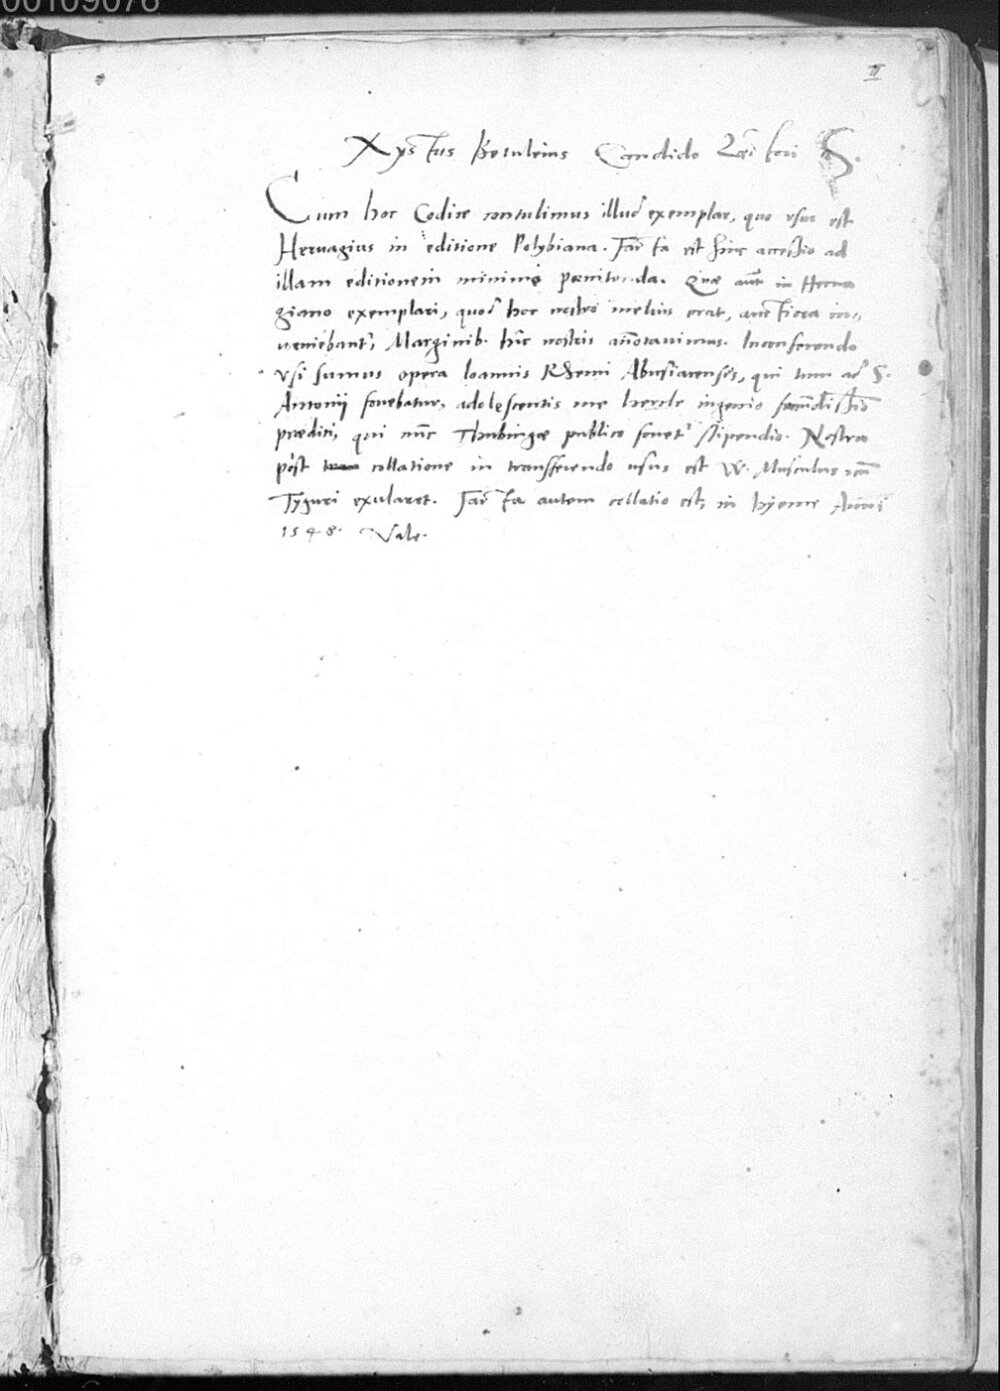 00109076
II
Xystus Betuleius Candido Lectori S.
Cum hoc Codice contulimus illud exemplar, quo usus est
Hervagius in editione Polybiana. Facta est hinc accessio ad
illam editionem minime poenitenda. Quae aut in Herva
giano exemplari, quod hoc nostro melius erat, auctiora in,,
veniebant', Marginib. hîc nostris añotavimus. In conferendo
usi sumus opera Ioannis Rhemi Abusiacensis, qui tum ad S.
Antonij fovebatur, adolescentis me hercle ingenio
praediti, qui nũc Thubingae publico fovet' stipendio. Nostra
pòst collatione in transferendo usus est W. Musculus, cũ
Tyguri exularet. Facta autem collatio est, in hyeme Anni
1548. Vale.